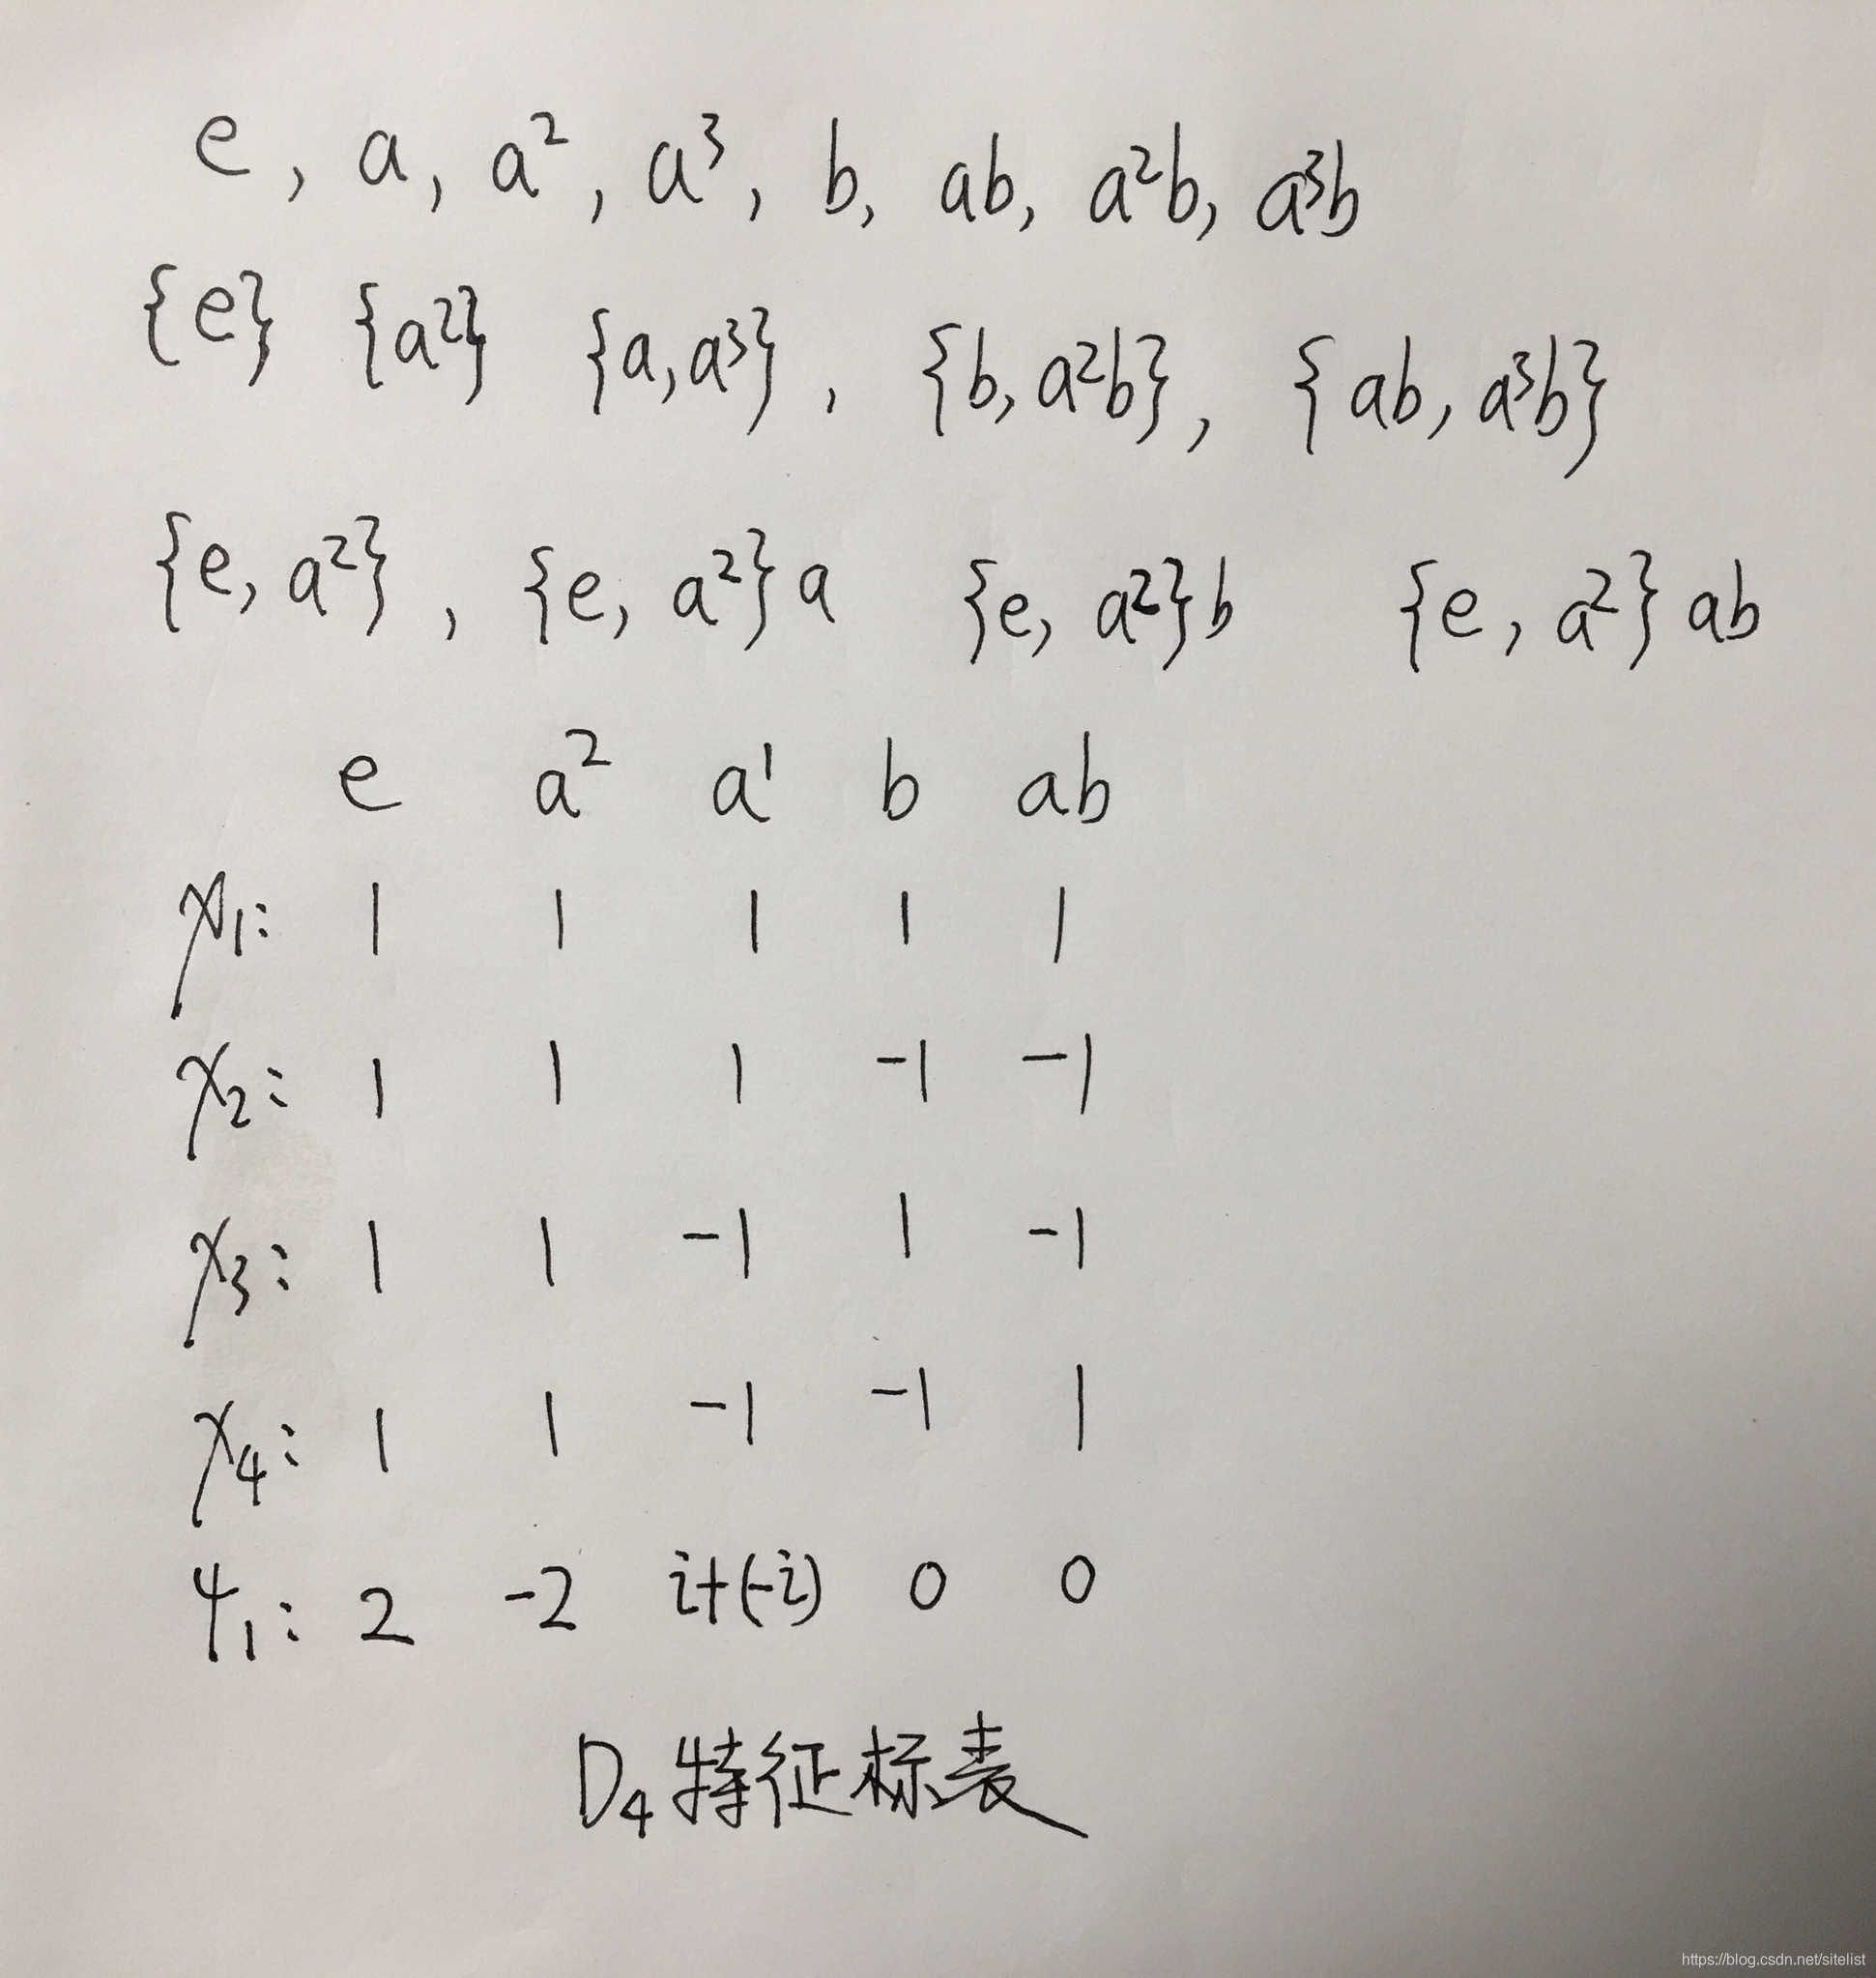 e, a, a², a³, b, ab, a²b, a³b
{e} {a²} {a, a³}, {b, a²b}, {ab, a³b}
{e, a²}, {e, a²}a {e, a²}b {e, a²}ab
e a² a¹ b ab
χ₁: 1 1 1 1 1
χ₂: 1 1 1 -1 -1
χ₃: 1 1 -1 1 -1
χ₄: 1 1 -1 -1 1
ψ₁: 2 -2 i+(-i) 0 0
D₄特征标表
https://blog.csdn.net/sitelist